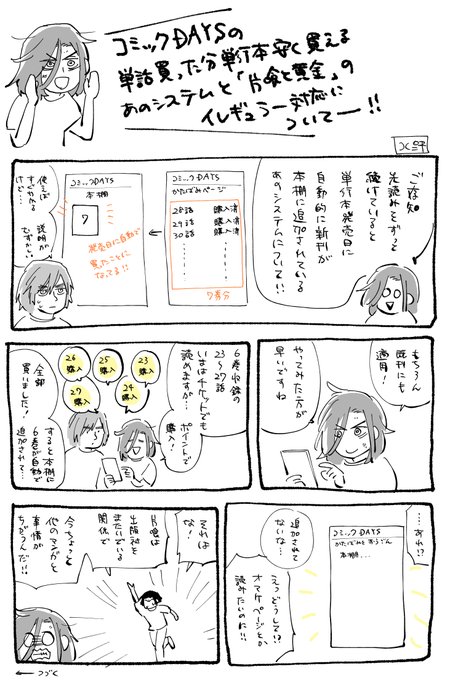 コミックDAYSの
単話買った分単行本安く買える
あのシステムと「片喰と黄金」の
イレギュラー対応に
ついてー!!
ご存知
先読みをずーっと
続けていると
単行本発売日に
自動的に新刊が
本棚に追加されている
あのシステムについて!!
コミックDAYS
かたばみページ
28話 購入済
29話 購入済
30話 購入済
7巻分
コミックDAYS
本棚
7
発売日に自動で
買ったことに
なってる!!
使えば
すぐわかる
けど…
説明が
むずかしい
もちろん
既刊にも
適用!
やってみた方が
早いですね
6巻収録の
23〜27話
いまはチケットでも
読めますが…
ポイントで
購入!
23
購入
24
購入
25
購入
26
購入
27
購入
全部
買いました!
すると本棚に
6巻が自動で
追加されて…
…あれ!?
追加されて
ないな…
コミックDAYS
かたばみとおうごん
本棚…
えっどうして!?
オマケページとか
読みたいのに!!
それは
な!
片喰は
出版社を
またいでいる
関係で
今ちょっと
他のマンガと
事情が
ちがうんだ!!
←つづく